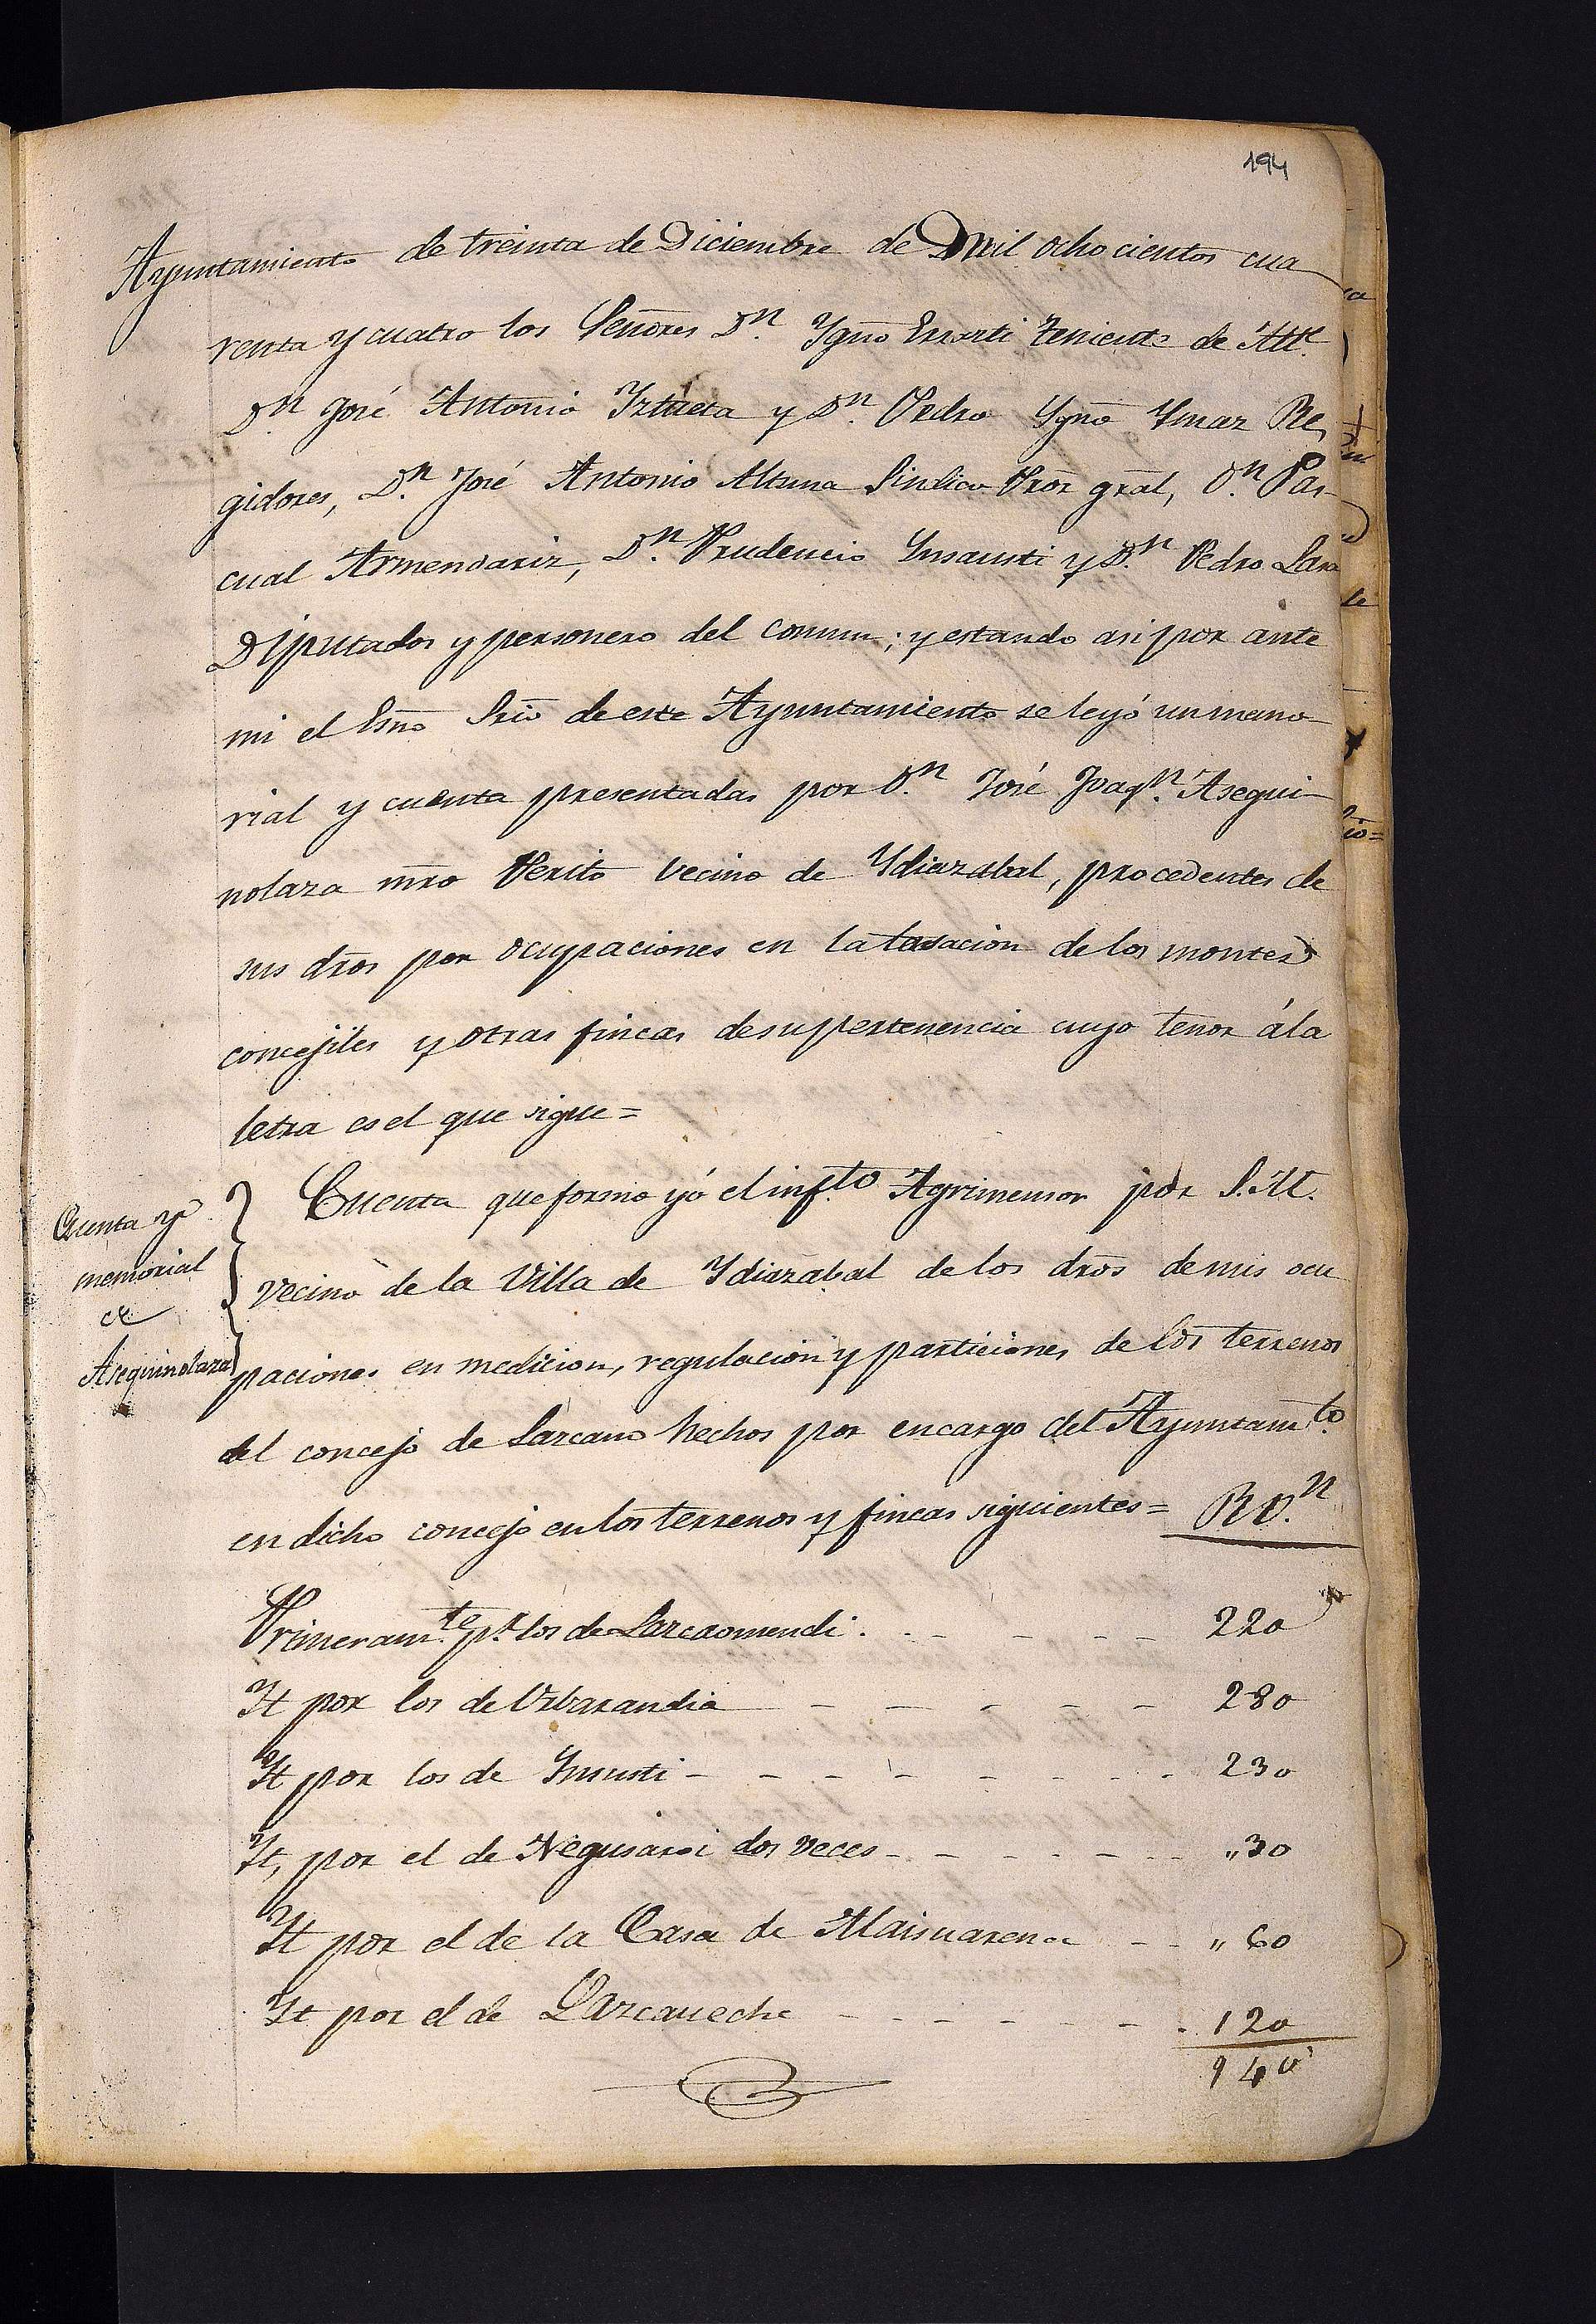 194
Ayuntamiento de treinta de Diciembre de Mil ocho cientos cua
renta y cuatro los Señores Dn. Ygno Errasti teniente de Alle.
Dn José Antonio Iztueta y Dn. Pedro Ygno Ymaz Re,
gidores, Dn. José Antonio Altuna Sindico Pror gral, Dn. Pas-
cual Armendariz, Dn. Prudencio Ynsausti y Dn. Pedro Lasa
Diputados y personero del comun; y estando asi por ante
mi el Esno Srio de este Ayuntamiento se leyó un memo
rial y cuenta presentadas por Dn. José Joaqn. Asegui-
nolaza mro Perito vecino de Ydiazabal, procedentes de
sus dros por ocupaciones en la tasacion de los montes
concejiles y otras fincas de su pertenencia cuyo tenor á la
letra es el que sigue =
Cuenta y
memorial
de
Aseguinolaza
Cuenta que formo yó el infto. Agrimensor por S.M.
vecino de la Villa de Ydiazabal de los dros de mis ocu
paciones en medicion, regulacion y particiones de los terrenos
del concejo de Lazcano hechos por encargo del Ayuntamto.
en dicho concejo en los terrenos y fincas siguientes = R. Vn.
Primeramte. pr. los de Lazcaomendi . - - - - 220
It por los de Urbarandia - - - - - - 280
It por los de Ynsusti - - - - - - - - 230
It, por el de Negusaroi dos veces - - - - - - „30
It por el de la Casa de Maisuarena - - „ 60
It por el de Lazcaueche - - - - - - - . 120
940